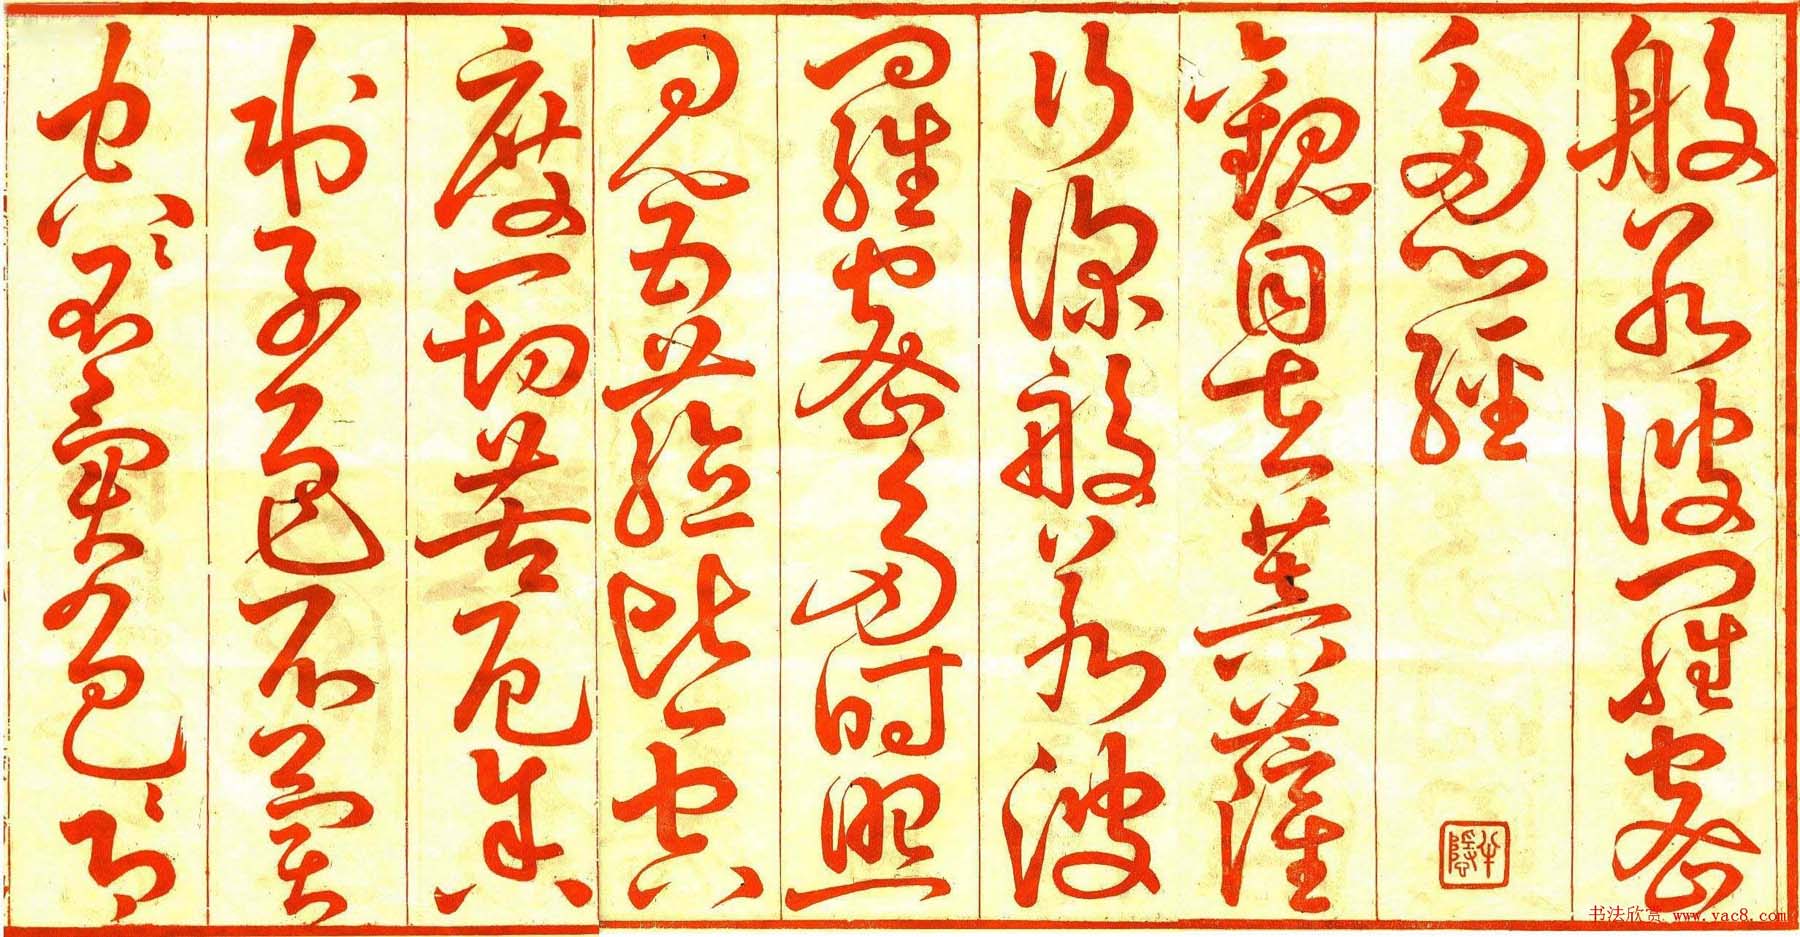 般若波羅蜜
多心經
觀自在菩薩
行深般若波
羅蜜多時照
見五蘊皆空
度一切苦厄舍
利子色不異
空空不異色色即
半隱
书法欣赏 www.yac8.com